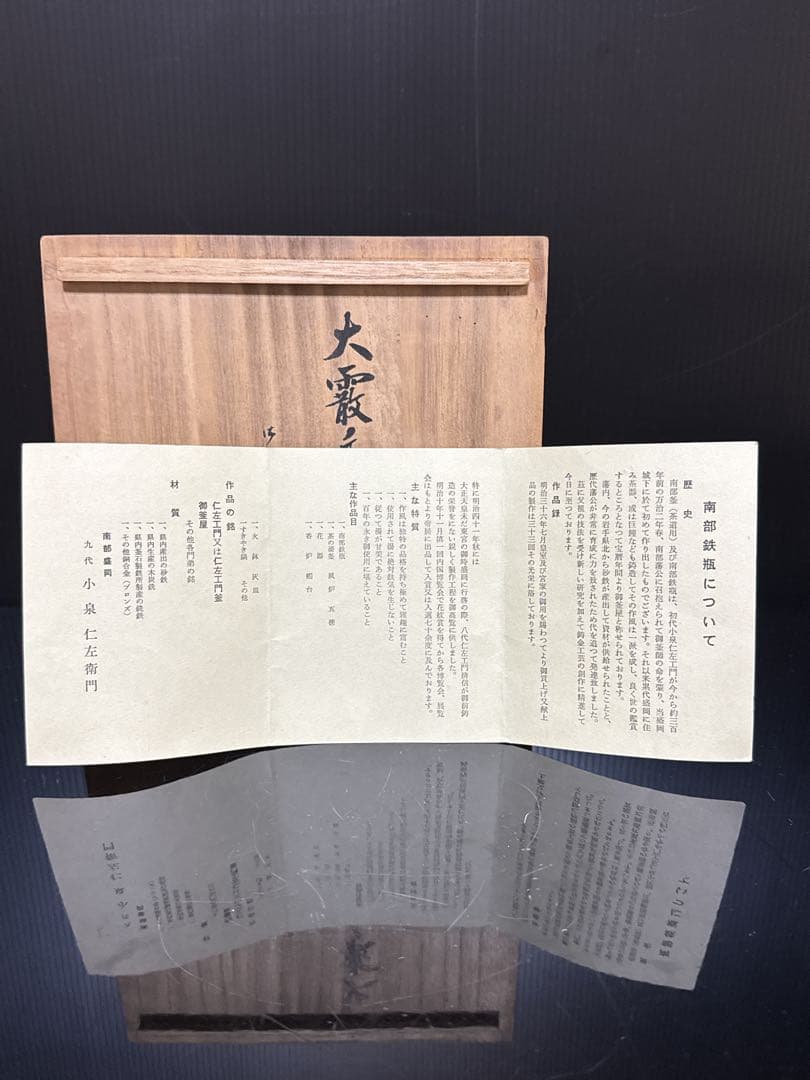 大霰
南部鉄瓶について
歴史
南部釜(茶道用)及び南部鉄瓶は、初代小泉仁左エ門が今から約三百
年前の万治二年春、南部藩公に召抱えられて御釜師の命を蒙り、当盛岡
城下に於て初めて作り出したものでございます。それ以来累代盛岡に住
み茶器、或は巨鐘なども鋳造してその作風は一派を成し、良く世の鑑賞
するところとなつて宝暦年間より御釜屋と称せられております。
藩内、今の岩手県北から砂鉄が産出して資材が供給せられたことと、
歴代藩公が非常に育成に力を致されたため代を追つて発達致しました。
茲に父祖の技法を受け新しい研究を加えて鋳金工芸の創作に精進して
今日に至つております。
作品録
明治三十六年七月皇室及び宮家の御用を賜わつてより御買上げ又献上
品の製作は三十三回その光栄に浴しております。
特に明治四十一年秋には
大正天皇未だ東宮の御時盛岡に行啓の際、八代仁左エ門
造の栄誉をにない親しく製作工程を御高覧に供しました。
明治十年十一月第一回内国博覧会で花紋賞を得てから各博覧会、展覧
会はもとより帝展に出品して入賞又は入選七十余度に及んでおります。
主な特質
一、作風は独特の品格を持ち極めて雅趣に富むこと
一、使用されて湯に絶対鉄気を生じないこと
一、従つて湯が甘美であること
一、百年の永き御使用に堪えていること
主な作品目
一、南部鉄瓶
一、茶の湯釜 風炉 五徳
一、花器
一、香炉 燭台
一、火鉢 灰皿
一、すきやき鍋 その他
作品の銘
仁左エ門又は仁左エ門釜
御釜屋
その他各門弟の銘
材質
一、県内産出の砂鉄
一、県内生産の木炭銑
一、県内釜石製鉄所製産の銑鉄
一、その他銅合金(ブロンズ)
南部盛岡
九代 小泉仁左衛門